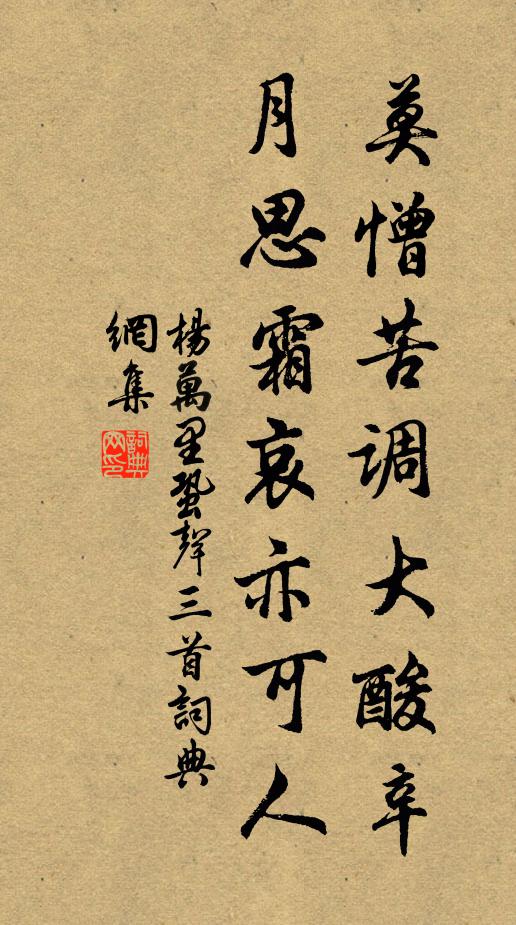 莫憎苦調大酸辛
月思霜哀亦可人
楊萬里蛩聲三首詞典
網集
詞典
网印